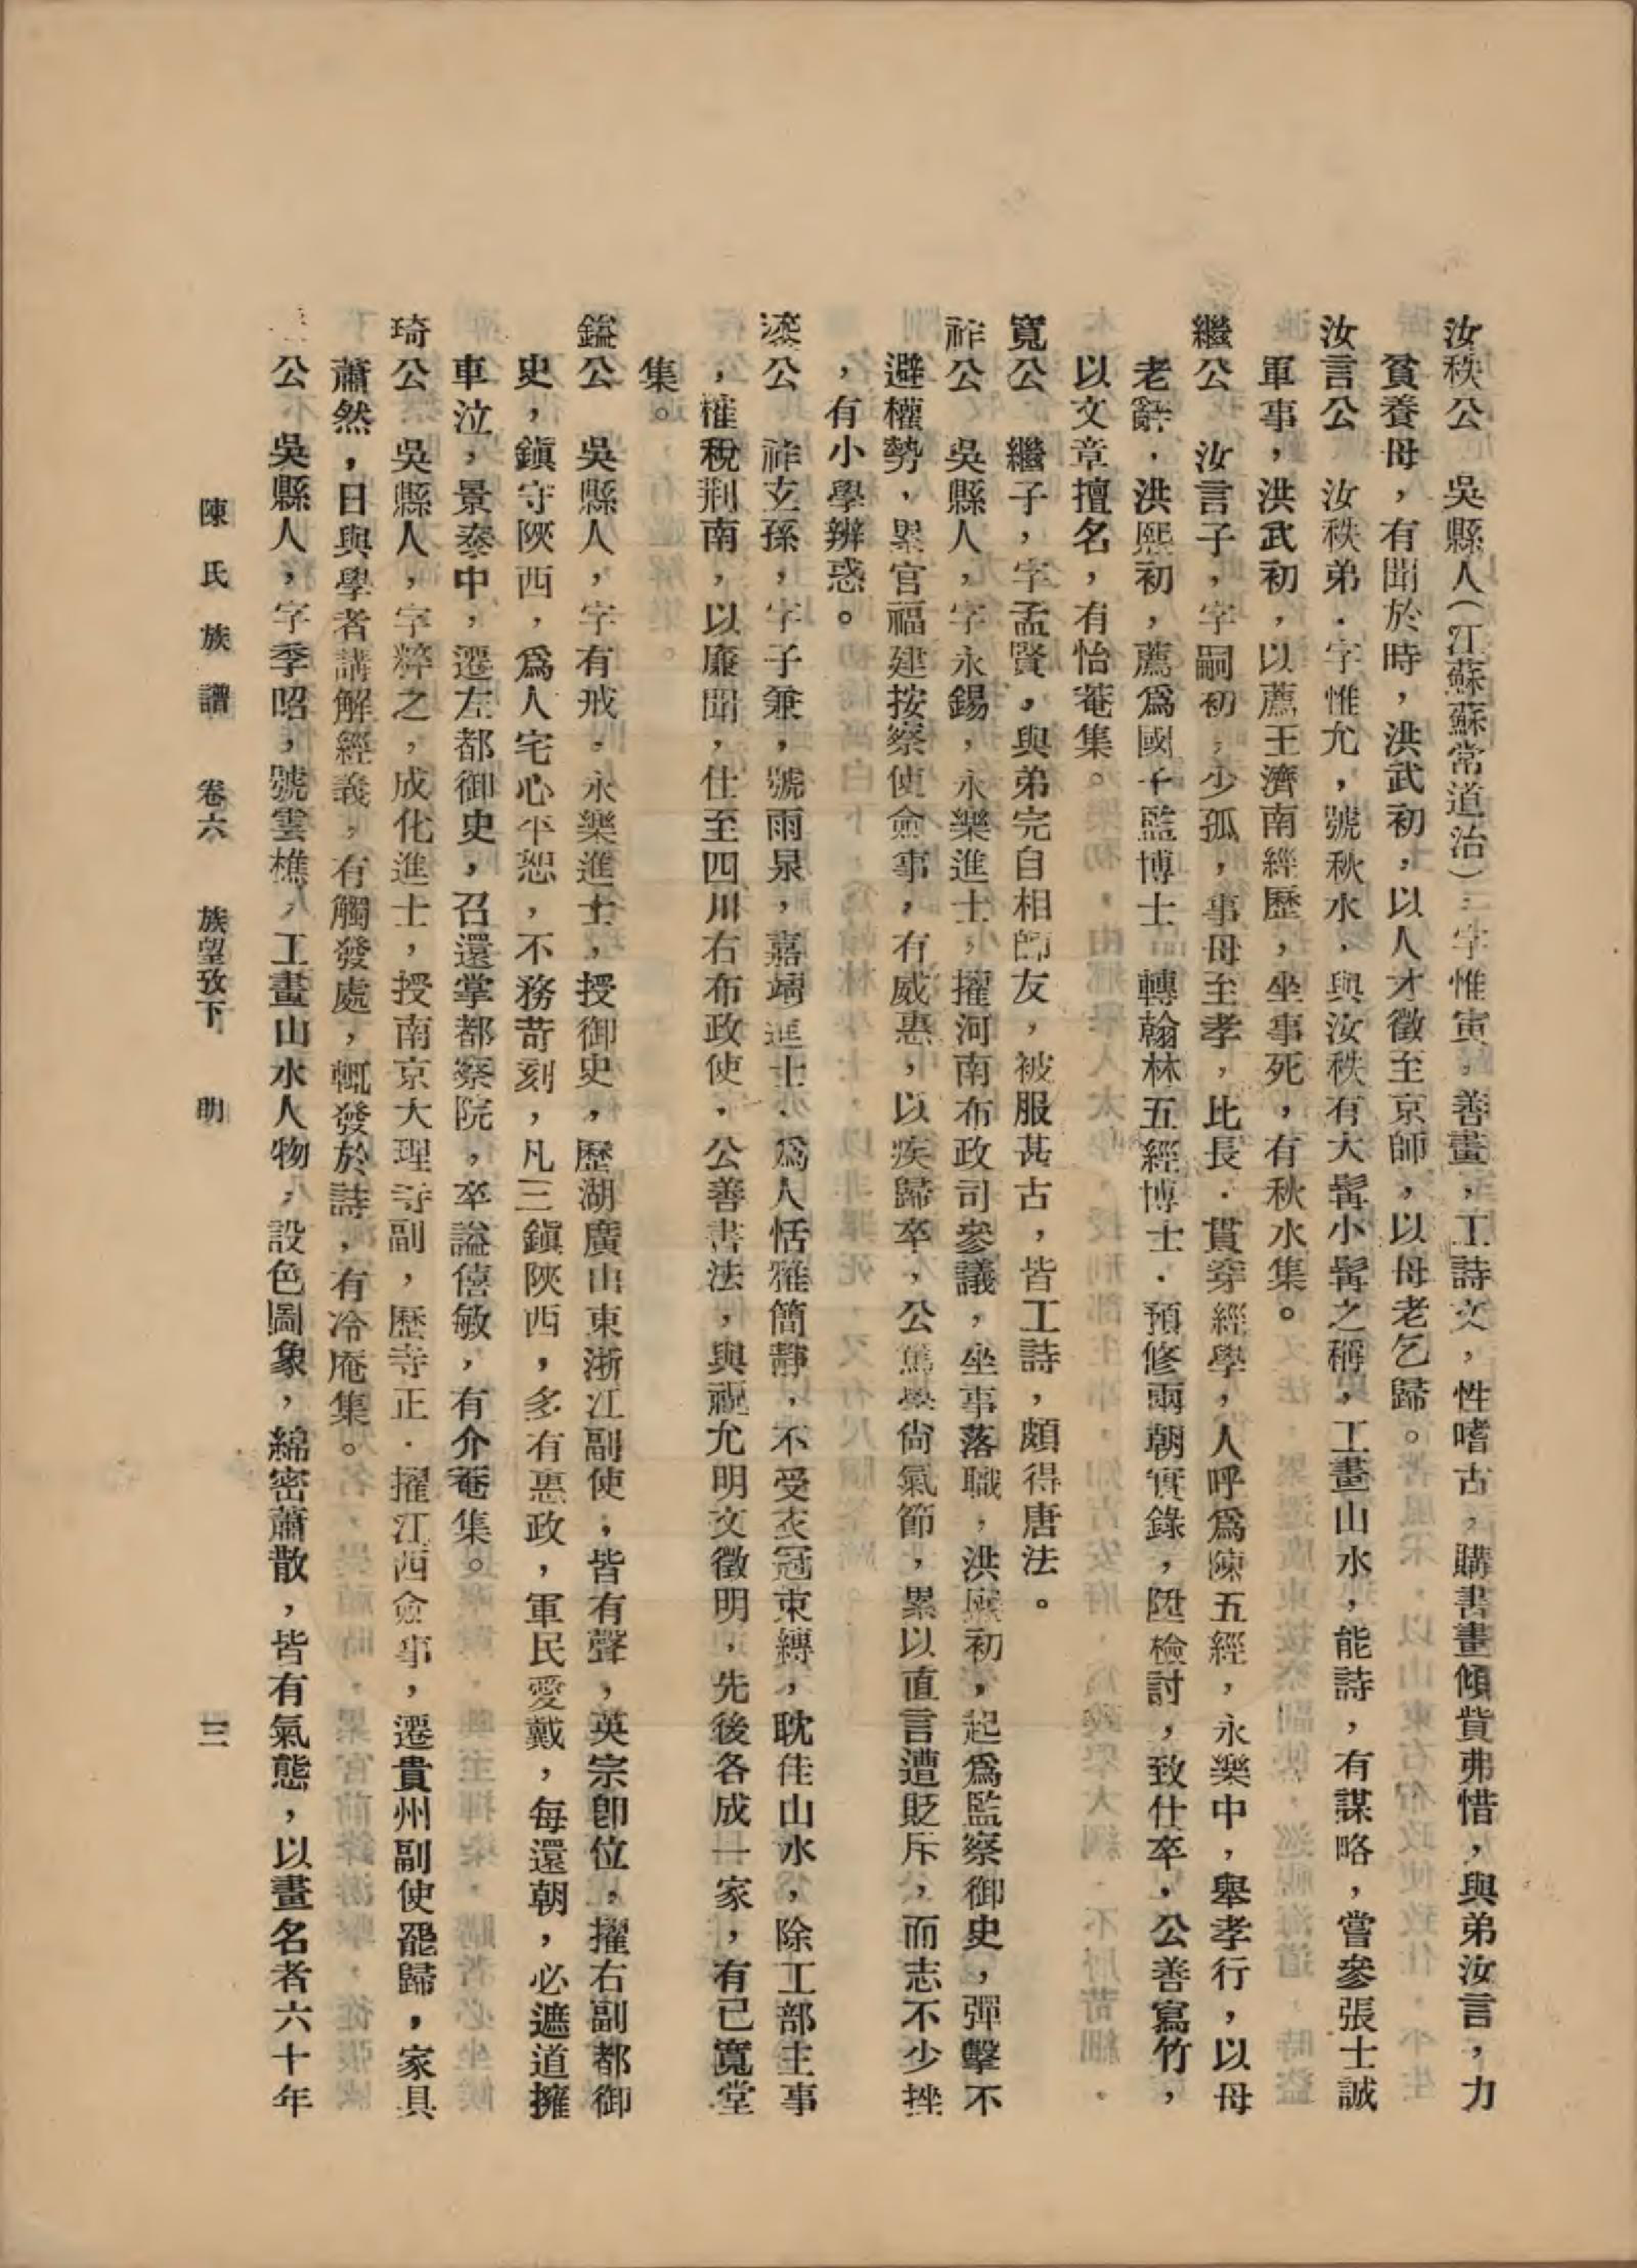 汝秩公　吳縣人（江蘇蘇常道治）字惟寅，善畫，工詩文，性嗜古，購書畫傾貲弗惜，與弟汝言，力
貧養母，有聞於時，洪武初，以人才徵至京師，以母老乞歸。
汝言公　汝秩弟．字惟允，號秋水，與汝秩有大髯小髯之稱，工畫山水，能詩，有謀略，嘗參張士誠
軍事，洪武初，以薦王濟南經歷，坐事死，有秋水集。
繼公　汝言子，字嗣初，少孤，事母至孝，比長．貫穿經學，人呼爲陳五經，永樂中，舉孝行，以母
老辭．洪熙初，薦爲國子監博士　轉翰林五經博士．預修兩朝實錄，陞檢討，致仕卒，公善寫竹，
以文章擅名，有怡菴集。
寬公　繼子，字孟賢，與弟完自相師友，被服甚古，皆工詩，頗得唐法。
祚公　吳縣人，字永錫，永樂進士，擢河南布政司參議，坐事落職，洪熙初，起爲監察御史，彈擊不
避權勢，累官福建按察使僉事，有威惠，以疾歸卒，公篤學尙氣節，累以直言遭貶斥，而志不少挫
，有小學辨惑。
公　祚玄孫，字子兼，號雨泉，嘉靖進士．爲人恬雅簡靜，不受衣冠束縛，耽佳山水，除工部主事
，榷稅荆南，以廉聞，仕至四川右布政使．公善書法，與祝允明文徵明，先後各成一家，有已寬堂
集。
鎰公　吳縣人，字有戒，永樂進士，授御史，歷湖廣山東浙江副使，皆有聲，英宗卽位，擢右副都御
史，鎭守陝西，爲人宅心平恕，不務苛刻，凡三鎭陝西，多有惠政，軍民愛戴，每還朝，必遮道擁
車泣，景泰中，遷左都御史，召還掌都察院，卒謚僖敏，有介菴集。
琦公　吳縣人，字粹之，成化進士，授南京大理寺副，歷寺正．擢江西僉事，遷貴州副使罷歸，家具
蕭然，日與學者講解經義，有觸發處，輒發於詩，有冷庵集。
公　吳縣人，字季昭，號雲樵，工畫山水人物，設色圖象，綿密蕭散，皆有氣態，以畫名者六十年
陳氏族譜　卷六　族望攷下　明　三